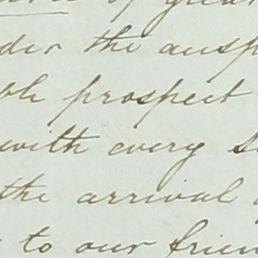 of great
the ausp
prospect
with every
the arrival
to our frien